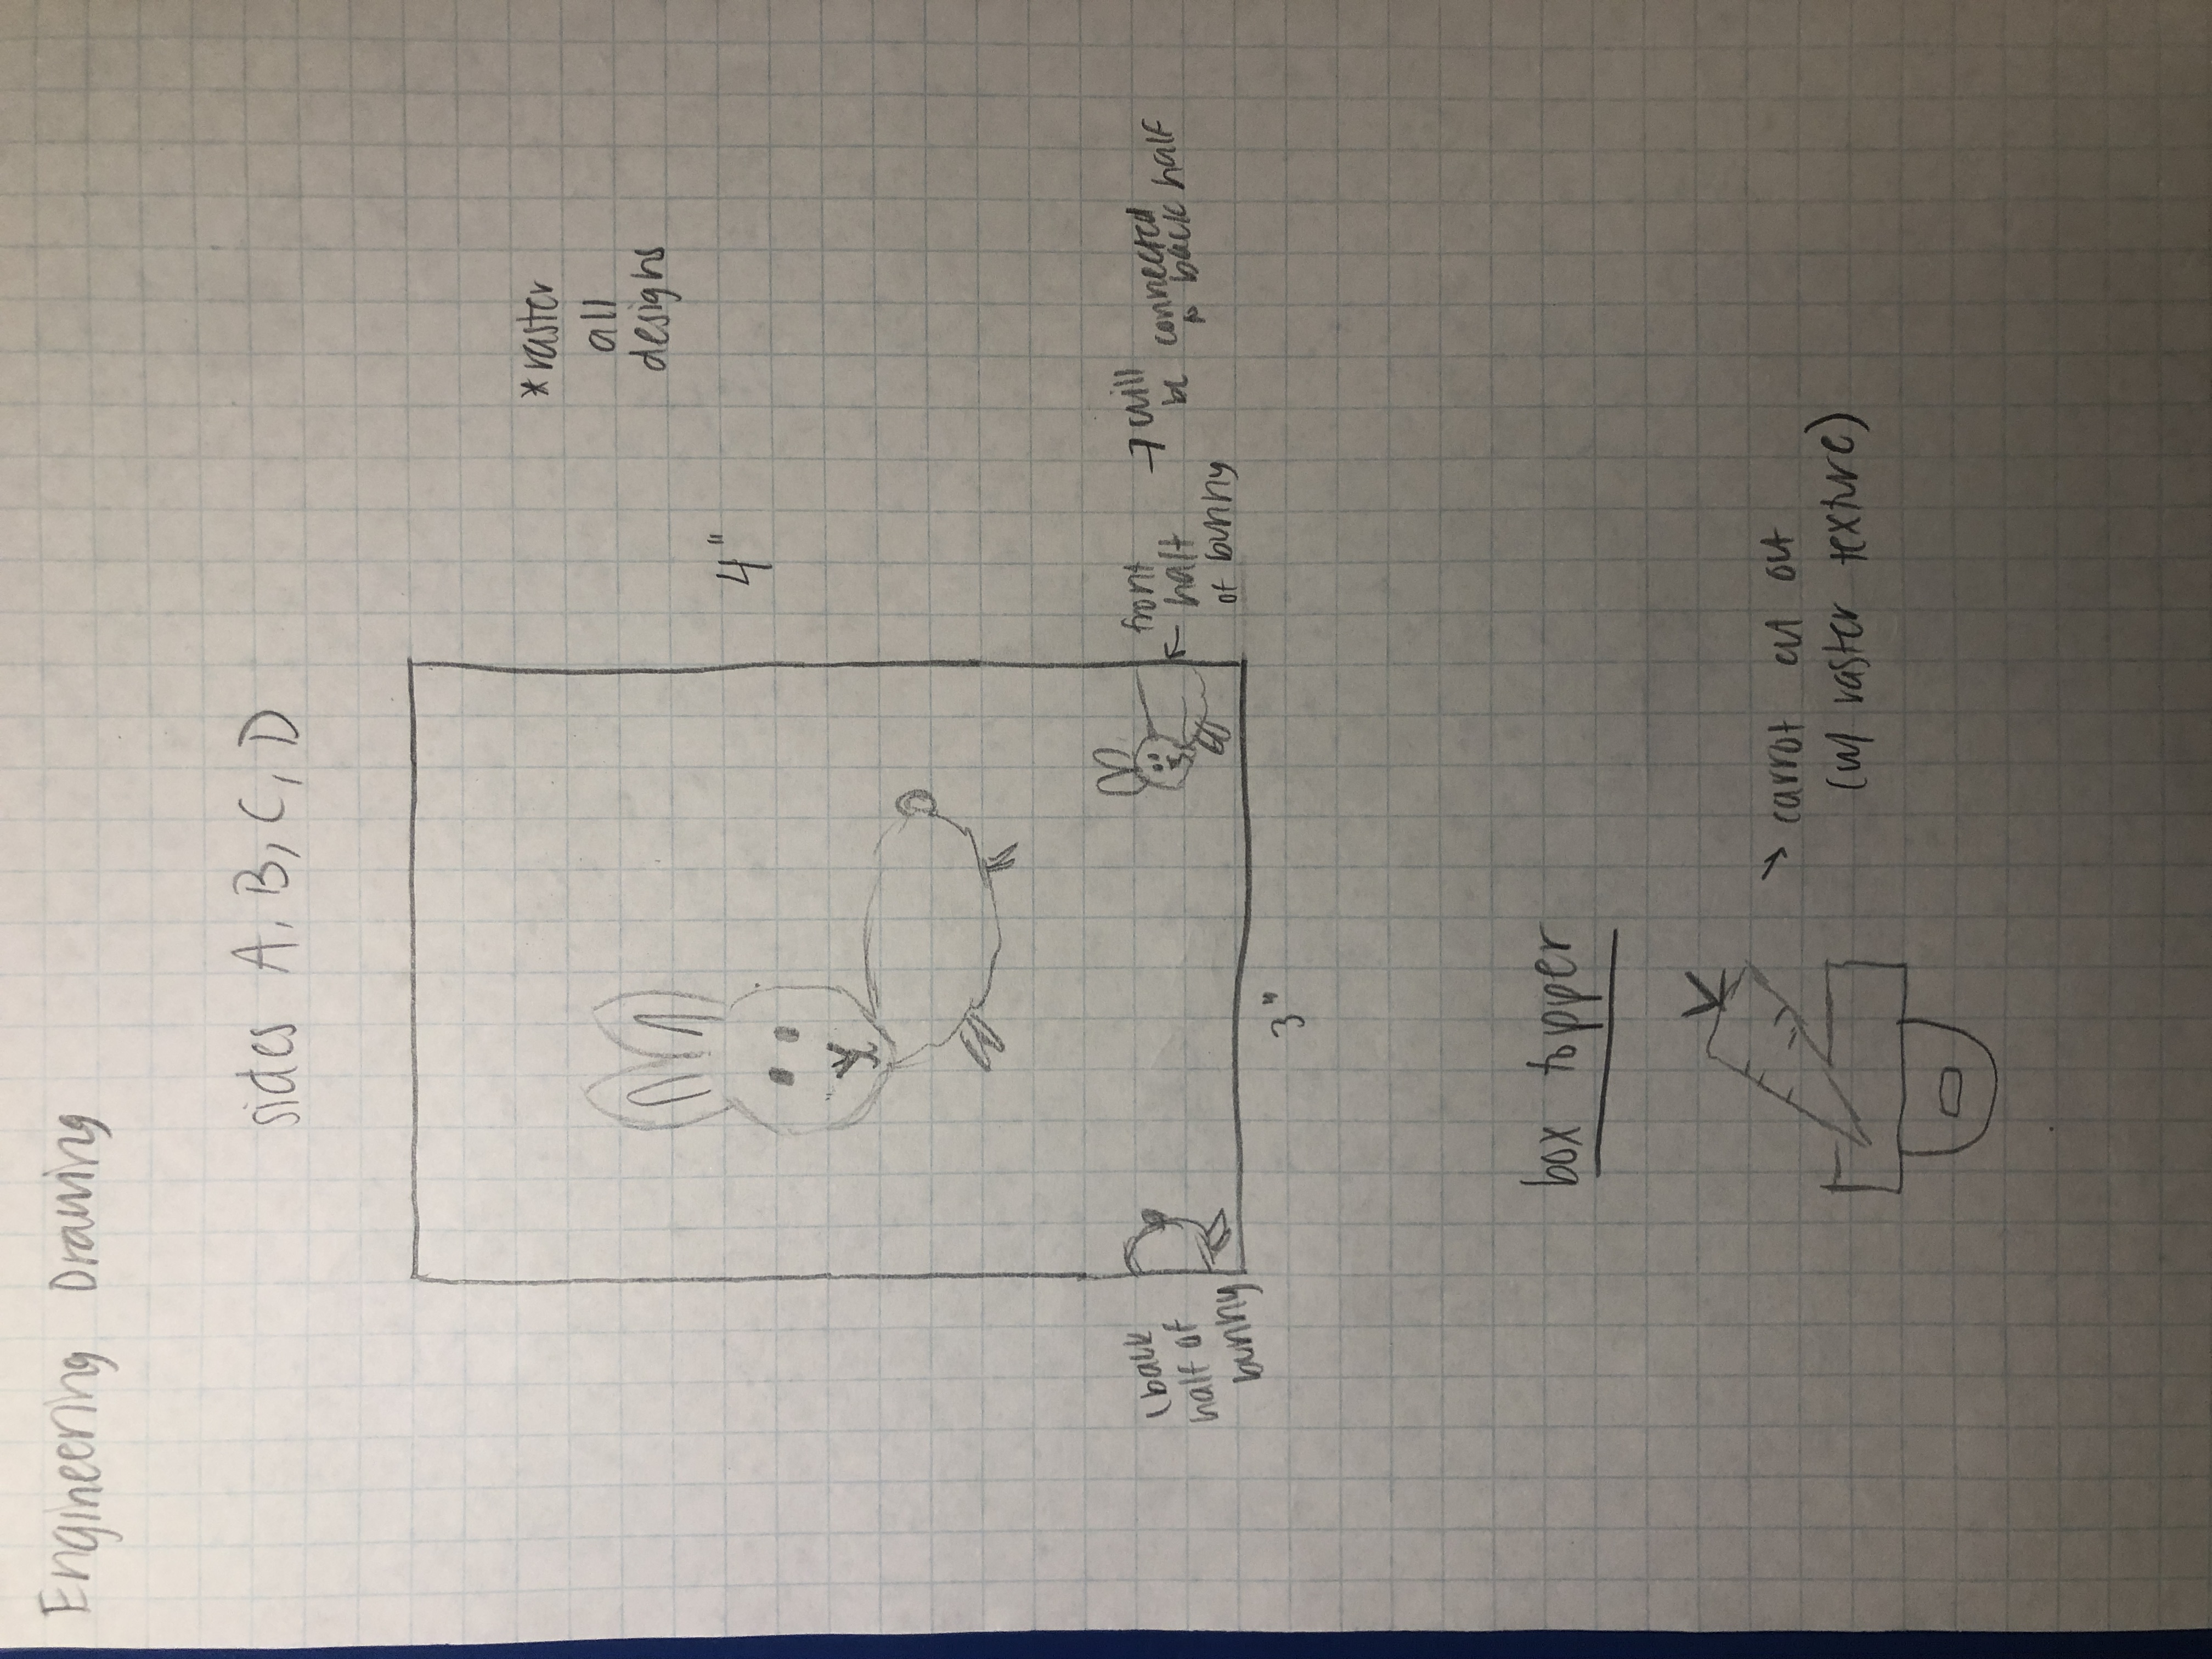 Engineering Drawing
sides A, B, C, D
* raster
all
designs
4"
(back
half of
bunny
front
half
of bunny
→ will
be connected
to back half
3"
box topper
→ carrot cut out
(w/ raster texture)